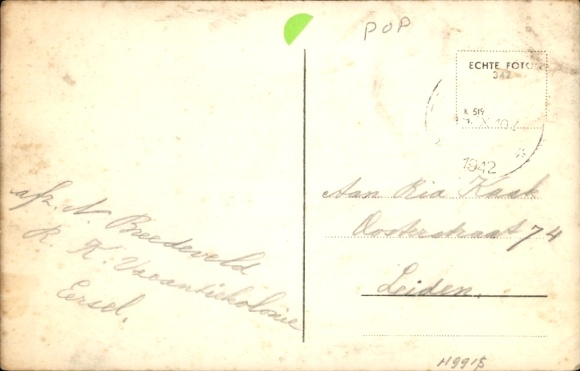 POP
ECHTE FOTO
342
K 519
1942
afz. N. Breedeveld
R. K. Vacantiekolonie
Eersel.
Aan Ria Kaak
Oosterstraat 74
Leiden.
H991$